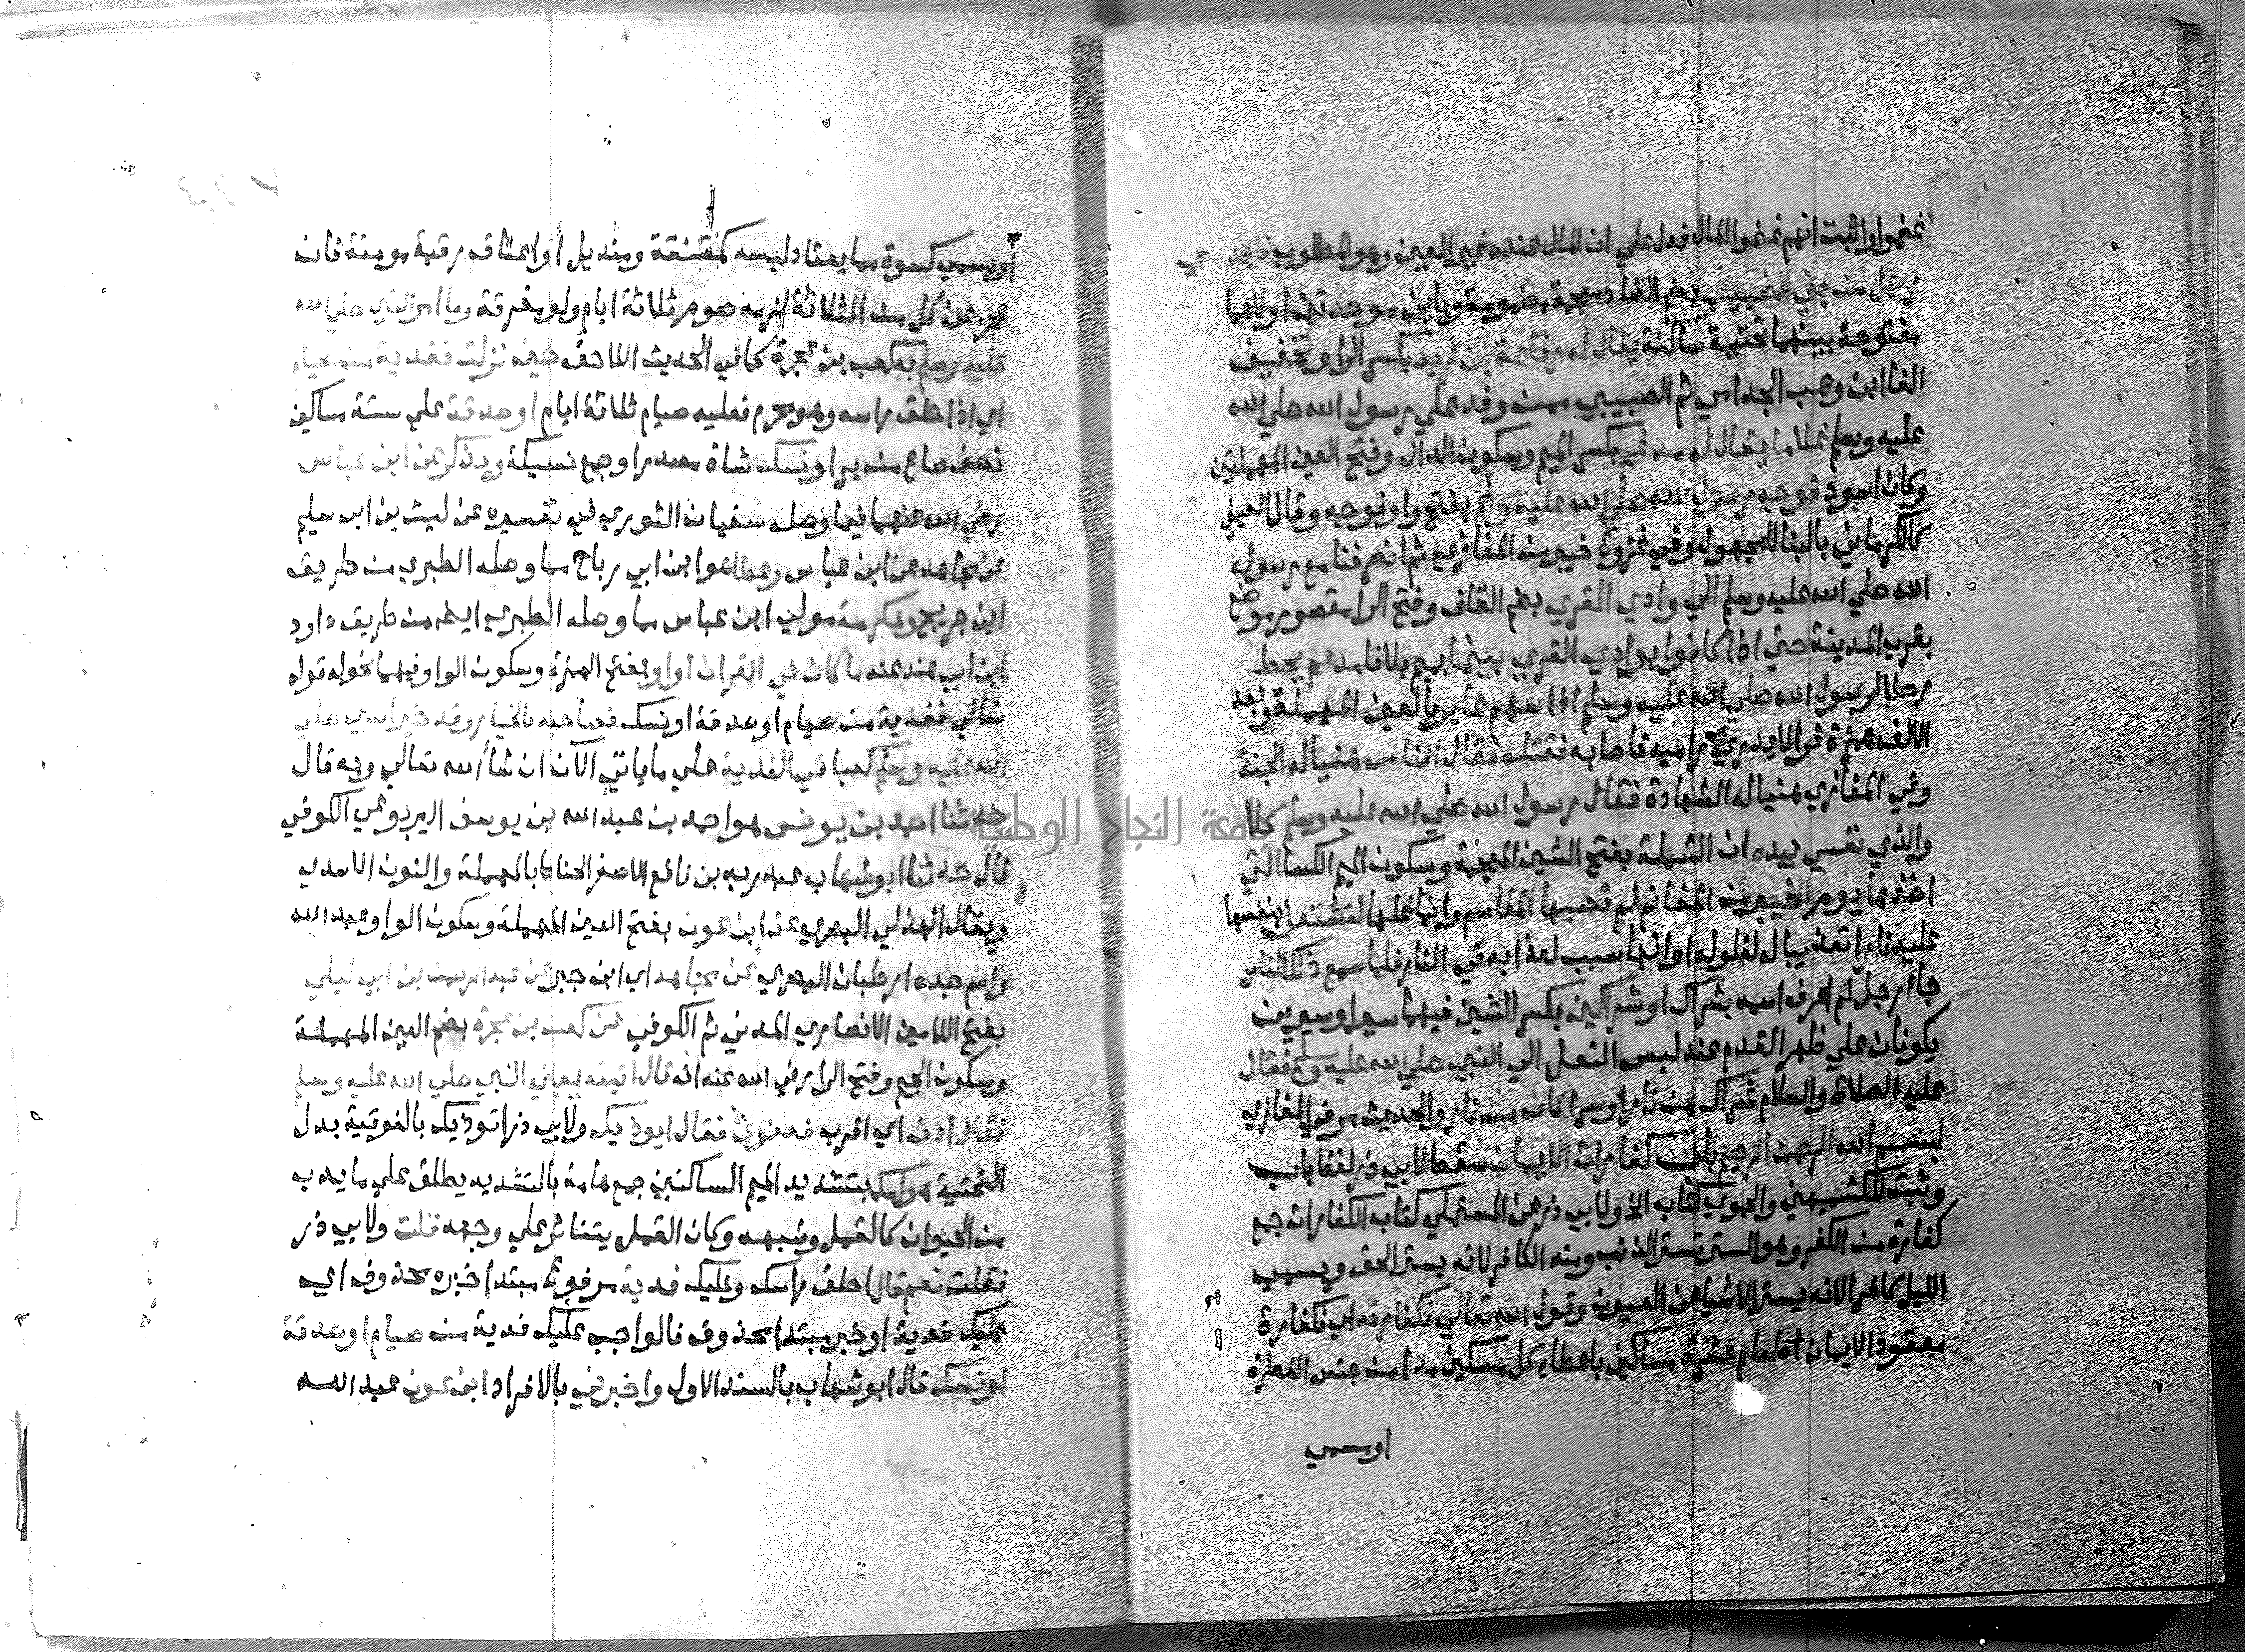 غنموا واثبت انهم غنموا المال فدل علي ان المال عنده غير العين وهو المطلوب فاهدي
رجل من بني الضبيب بضم الضاد معجمة مضمومة وبابين موحدتين اولاهما
مفتوحة بينهما تحتية ساكنة يقال له رفاعة بن زيد بكسر الرا وتخفيف
الفا ابن وهب الجذامي ثم الضبيبي ممن وفد علي رسول الله صلي الله
عليه وسلم غلاما يقال له مدعم بكسر الميم وسكون الدال وفتح العين المهملتين
وكان اسود فوجه رسول الله صلي الله عليه وسلم بفتح واو فوجه وقال العيني
كالكرماني بالبنا للمجهول وفي غزوة خيبر من المغازي ثم انصرفنا مع رسول
الله صلي الله عليه وسلم الي وادي القري بضم القاف وفتح الرا مقصور موضع
بقرب المدينة حتي اذا كانوا بوادي القري بينما بميم بلا فا مدعم يحط
رحلا لرسول الله صلي الله عليه وسلم اذا سهم عاير بالعين المهملة وبعد
الالف همزة فرا لا يدري راميه فاصابه فقتله فقال الناس هنيا له الجنة
وفي المغازي هنيا له الشهادة فقال رسول الله صلي الله عليه وسلم كلا
والذي نفسي بيده ان الشملة بفتح الشين المعجمة وسكون الميم الكسا التي
اخذها يوم خيبر من المغانم لم تصبها المقاسم وانما غلها لتشتعل بنفسها
عليه نارا تعذيبا له لغلوله او انها سبب لعذابه في النار فلما سمع ذلك الناس
جاء رجل لم اعرف اسمه بشراك او شراكين بكسر الشين فيهما سير او سيرين
يكونان علي ظهر القدم عند لبس النعل الي النبي صلي الله عليه وسلم فقال
عليه الصلاة والسلام شراك من نار او شراكان من نار والحديث مر في المغازي
بسم الله الرحمن الرحيم باب كفارات الايمان سقط لابي ذر لفظ باب
وثبت للكشميهني والحموي كتاب الخ ولابي ذر عن المستملي كتاب الكفارات جمع
كفارة من الكفر وهو الستر تستر الذنب ومنه الكافر لانه يستر الحق ويسمي
الليل كافرا لانه يستر الاشيا عن العيون وقول الله تعالي فكفارته اي فكفارة
معقود الايمان اطعام عشرة مساكين باعطاء كل مسكين مدا من جنس الفطرة
او يسمي
او يسمي كسوة مما يعتاد لبسه كمقنعة ومنديل او اعتاق رقبة مومنة فان
عجز عن كل من الثلاثة لزمه صوم ثلاثة ايام ولو مفرقة وما امر النبي صلي الله
عليه وسلم به كعب بن عجرة كما في الحديث اللاحق حين نزلت ففدية من صيام
اي اذا حلق راسه وهو محرم فعليه صيام ثلاثة ايام او صدقة علي ستة مساكين
نصف صاع من بر او نسك شاة مصدر او جمع نسيكة ويذكر عن ابن عباس
رضي الله عنهما فيما وصله سفيان الثوري في تفسيره عن ليث بن ابي سليم
عن مجاهد عن ابن عباس وعطا هو ابن ابي رباح مما وصله الطبري من طريق
ابن جريج وعكرمة مولي ابن عباس مما وصله الطبري ايضا من طريق داود
ابن ابي هند عنه ما كان في القران او او بفتح الهمزة وسكون الواو فيهما نحو قوله
تعالي ففدية من صيام او صدقة او نسك فصاحبه بالخيار وقد خير النبي صلي
الله عليه وسلم كعبا في الفدية علي ما ياتي الان ان شاء الله تعالي وبه قال
حدثنا احمد بن يونس هو احمد بن عبد الله بن يوسف اليربوعي الكوفي
قال حدثنا ابو شهاب عبد ربه بن نافع الاصغر الحناط بالمهملة والنون الاسدي
ويقال الهذلي البصري عن ابن عون بفتح العين المهملة وسكون الواو عبد الله
واسم جده ارطبان البصري عن مجاهد اي ابن جبر عن عبد الرحمن بن ابي ليلي
بفتح اللامين الانصاري المدني ثم الكوفي عن كعب بن عجرة بضم العين المهملة
وسكون الجيم وفتح الرا رضي الله عنه انه قال اتيته يعني النبي صلي الله عليه وسلم
فقال ادن اي اقرب فدنوت فقال ايوذيك ولابي ذر اتوذيك بالفوقية بدل
التحتية هوامك بتشديد الميم الساكنين جمع هامة بالتشديد يطلق علي ما يدب
من الحيوان كالقمل وشبهه وكان القمل يتناثر علي وجهه قلت ولابي ذر
فقلت نعم قال احلق راسك وعليك فدية مرفوع مبتدا خبره محذوف اي
عليك فدية او خبر مبتدا محذوف فالواجب عليك فدية من صيام او صدقة
او نسك قال ابو شهاب بالسند الاول واخبرني بالافراد ابن عون عبد الله
جامعة النجاح الوطنية